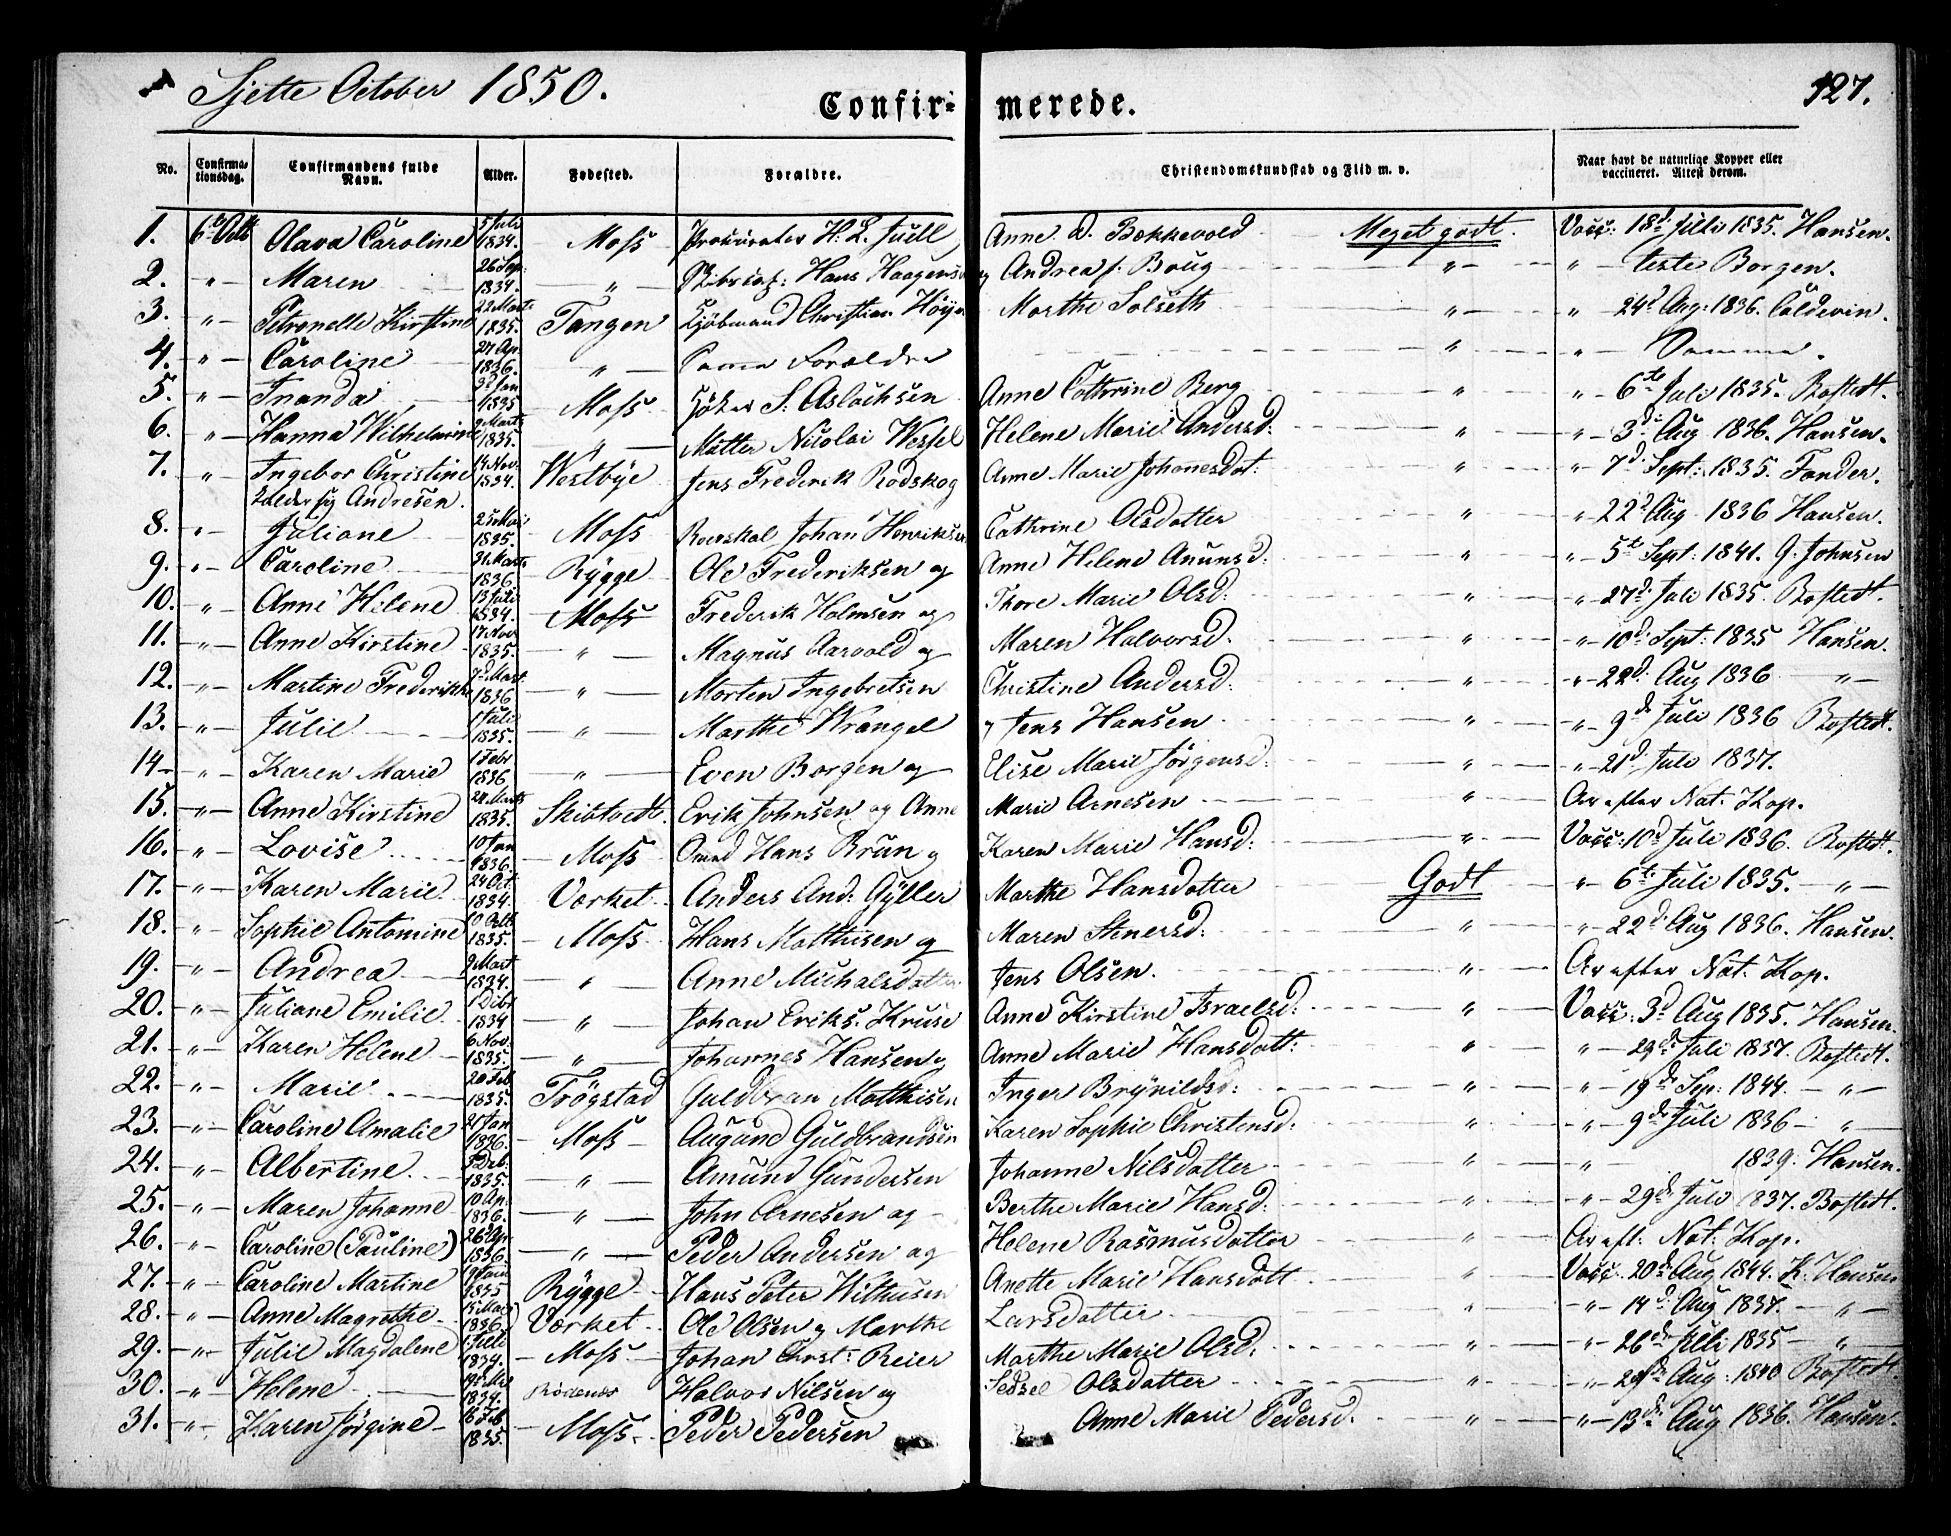 Sjette October 1850.
127.
Confirmerede.
No. Confirmationsdag. Confirmandens fulde Navn. Alder. Fødested. Forældre. Christendomskundskab og Flid m. v. Naar havt de naturlige Kopper eller vaccineret. Attest derom.
1. 6te Octb Olava Caroline 5 Juli 1834. Moss Procurator H. L. Juell, Anne D. Bokkevold Meget godt. Vacc: 18d Juli 1835. Hansen.
2. " Maren 26 Sep: 1834. " Hans Haagens og Andrea f. Boug " " teste Borgen.
3. " Petronelle Kirstine 22 Mart: 1835. Tangen Kjøbmand Christian Høyer Marthe Solseth " " 24d Aug: 1836. Coldevin.
4. " Caroline 27 Ap. 1836. " Samme Forældre " " Samme.
5. " Inanda 3d Jan 1835 Moss S. Aslachsen Anne Cathrine Berg " " 6te Juli 1835. Bostedt.
6. " Hanna Wilhelmine 9 Marts 1835. " Matter Nicolai Wessel Helene Marie Andersd: " " 3d Aug 1836. Hansen.
7. " Ingebor Christine 14 Nov. 1834. Westbye Jens Frederik Rodskog Anne Marie Johannesdat: " " 7d Sept: 1835. Tonder.
Andresen.
8. " Juliane 25 Mai 1835. Moss Johan Henriksen Cathrine Olsdatter " " 22d Aug 1836 Hansen.
9. " Caroline 31 Marts 1836 Rygge Ole Frederiksen og Anne Helene Anunsd: " " 5te Sept. 1841. G. Johnsen
10. " Anne Helene 13 Juli 1834. Moss Frederik Holmsen og Thore Marie Olsd: " " 27d: Juli 1835. Bostedt.
11. " Anne Kirstine 17 Nov 1835. " Magnus Aarvold og Maren Halvorsd. " " 10d: Sept: 1835 Hansen.
12. " Martine Frederikke 7d Mart. 1836 " Morten Ingebretsen Christine Andersd: " " 22d: Aug 1836 "
13. " Julie 1 Juli 1835. " Marthe Wrangel og Jens Hansen " " 9de Juli 1836 Bostedt.
14 " Karen Marie 1 Febr 1836 " Even Borgen og Elise Marie Jørgensd: " " 21d: Juli 1837.
15. " Anne Kirstine 24 Marts 1835. Skibtvedt. Erik Johnsen og Anne Marie Arnesen " Ar efter Nat. Kop.
16. " Lovise 10 Jan 1836. Moss Hans Brun og Karen Marie Hansd: " Vacc: 10d Juli 1836. Bostedt.
17. " Karen Marie 24 Oct. 1834. Værket Anders And: Gyller Marthe Hansdatter Godt " 6te Juli 1835. "
18. " Sophie Antomine 10 Octb 1835. Moss Hans Mathisen og Maren Stenersd. " " 22d. Aug 1836. Hansen.
19. " Andrea 9 Mart 1834. " Anne Michalsdatter Jens Olsen. " Ar efter Nat. Kop.
20. " Juliane Emilie 1 Dcbr 1834 " Johan Eriks. Kruse Anne Kirstine Israelsd: " Vacc: 3d Aug 1835. Hansen.
21. " Karen Helene 6 Nov. 1835. " Johannes Hansen og Anne Marie Hansdatt: " " 29de Juli 1837. Bostedt.
22. " Marie 20 Feb 1835. Trøgstad Guldbran Matthisen Inger Brynildsd: " " 19de Sep: 1844. "
23. " Caroline Amalie 21 Jan 1836. Moss Augund Guldbrandsen Karen Sophie Christensd: " " 9de Juli 1836 "
24. " Albertine 1835. " Amund Gundersen Johanne Nilsdatter " " 1839. Hansen.
25. " Maren Johanne 10 Ap. 1836. " John Arnesen og Berthe Marie Hansd: " " 29de Juli 1837. Bostedt.
26. " Caroline (Pauline) 26 Apr. 1836 " Peder Andersen og Helene Rasmusdatter " Ar eft. Nat. Kop.
27. " Caroline Martine 1835 Rygge Hans Peter Withusen Anette Marie Hansdatt " Vacc. 20de Aug 1844. K. Hansen
28. " Anne Magrethe 15 Mart 1836 Værket Ole Olsen og Marthe Larsdatter " " 14d. Aug 1837. "
29. " Julie Magdalene 1 Juli 1834. Moss Johan Christ: Reier Marthe Marie Olsd: " " 26de Juli 1835 "
30. " Helene 1834. Rødenæs Halvor Nilsen og Sedsel Olsdatter " " 29de Aug: 1840 Bostedt.
31. " Karen Jørgine 16 Feb 1835. Moss. Peder Pedersen Anne Marie Pedersd. " " 13de Aug 1836. Hansen.